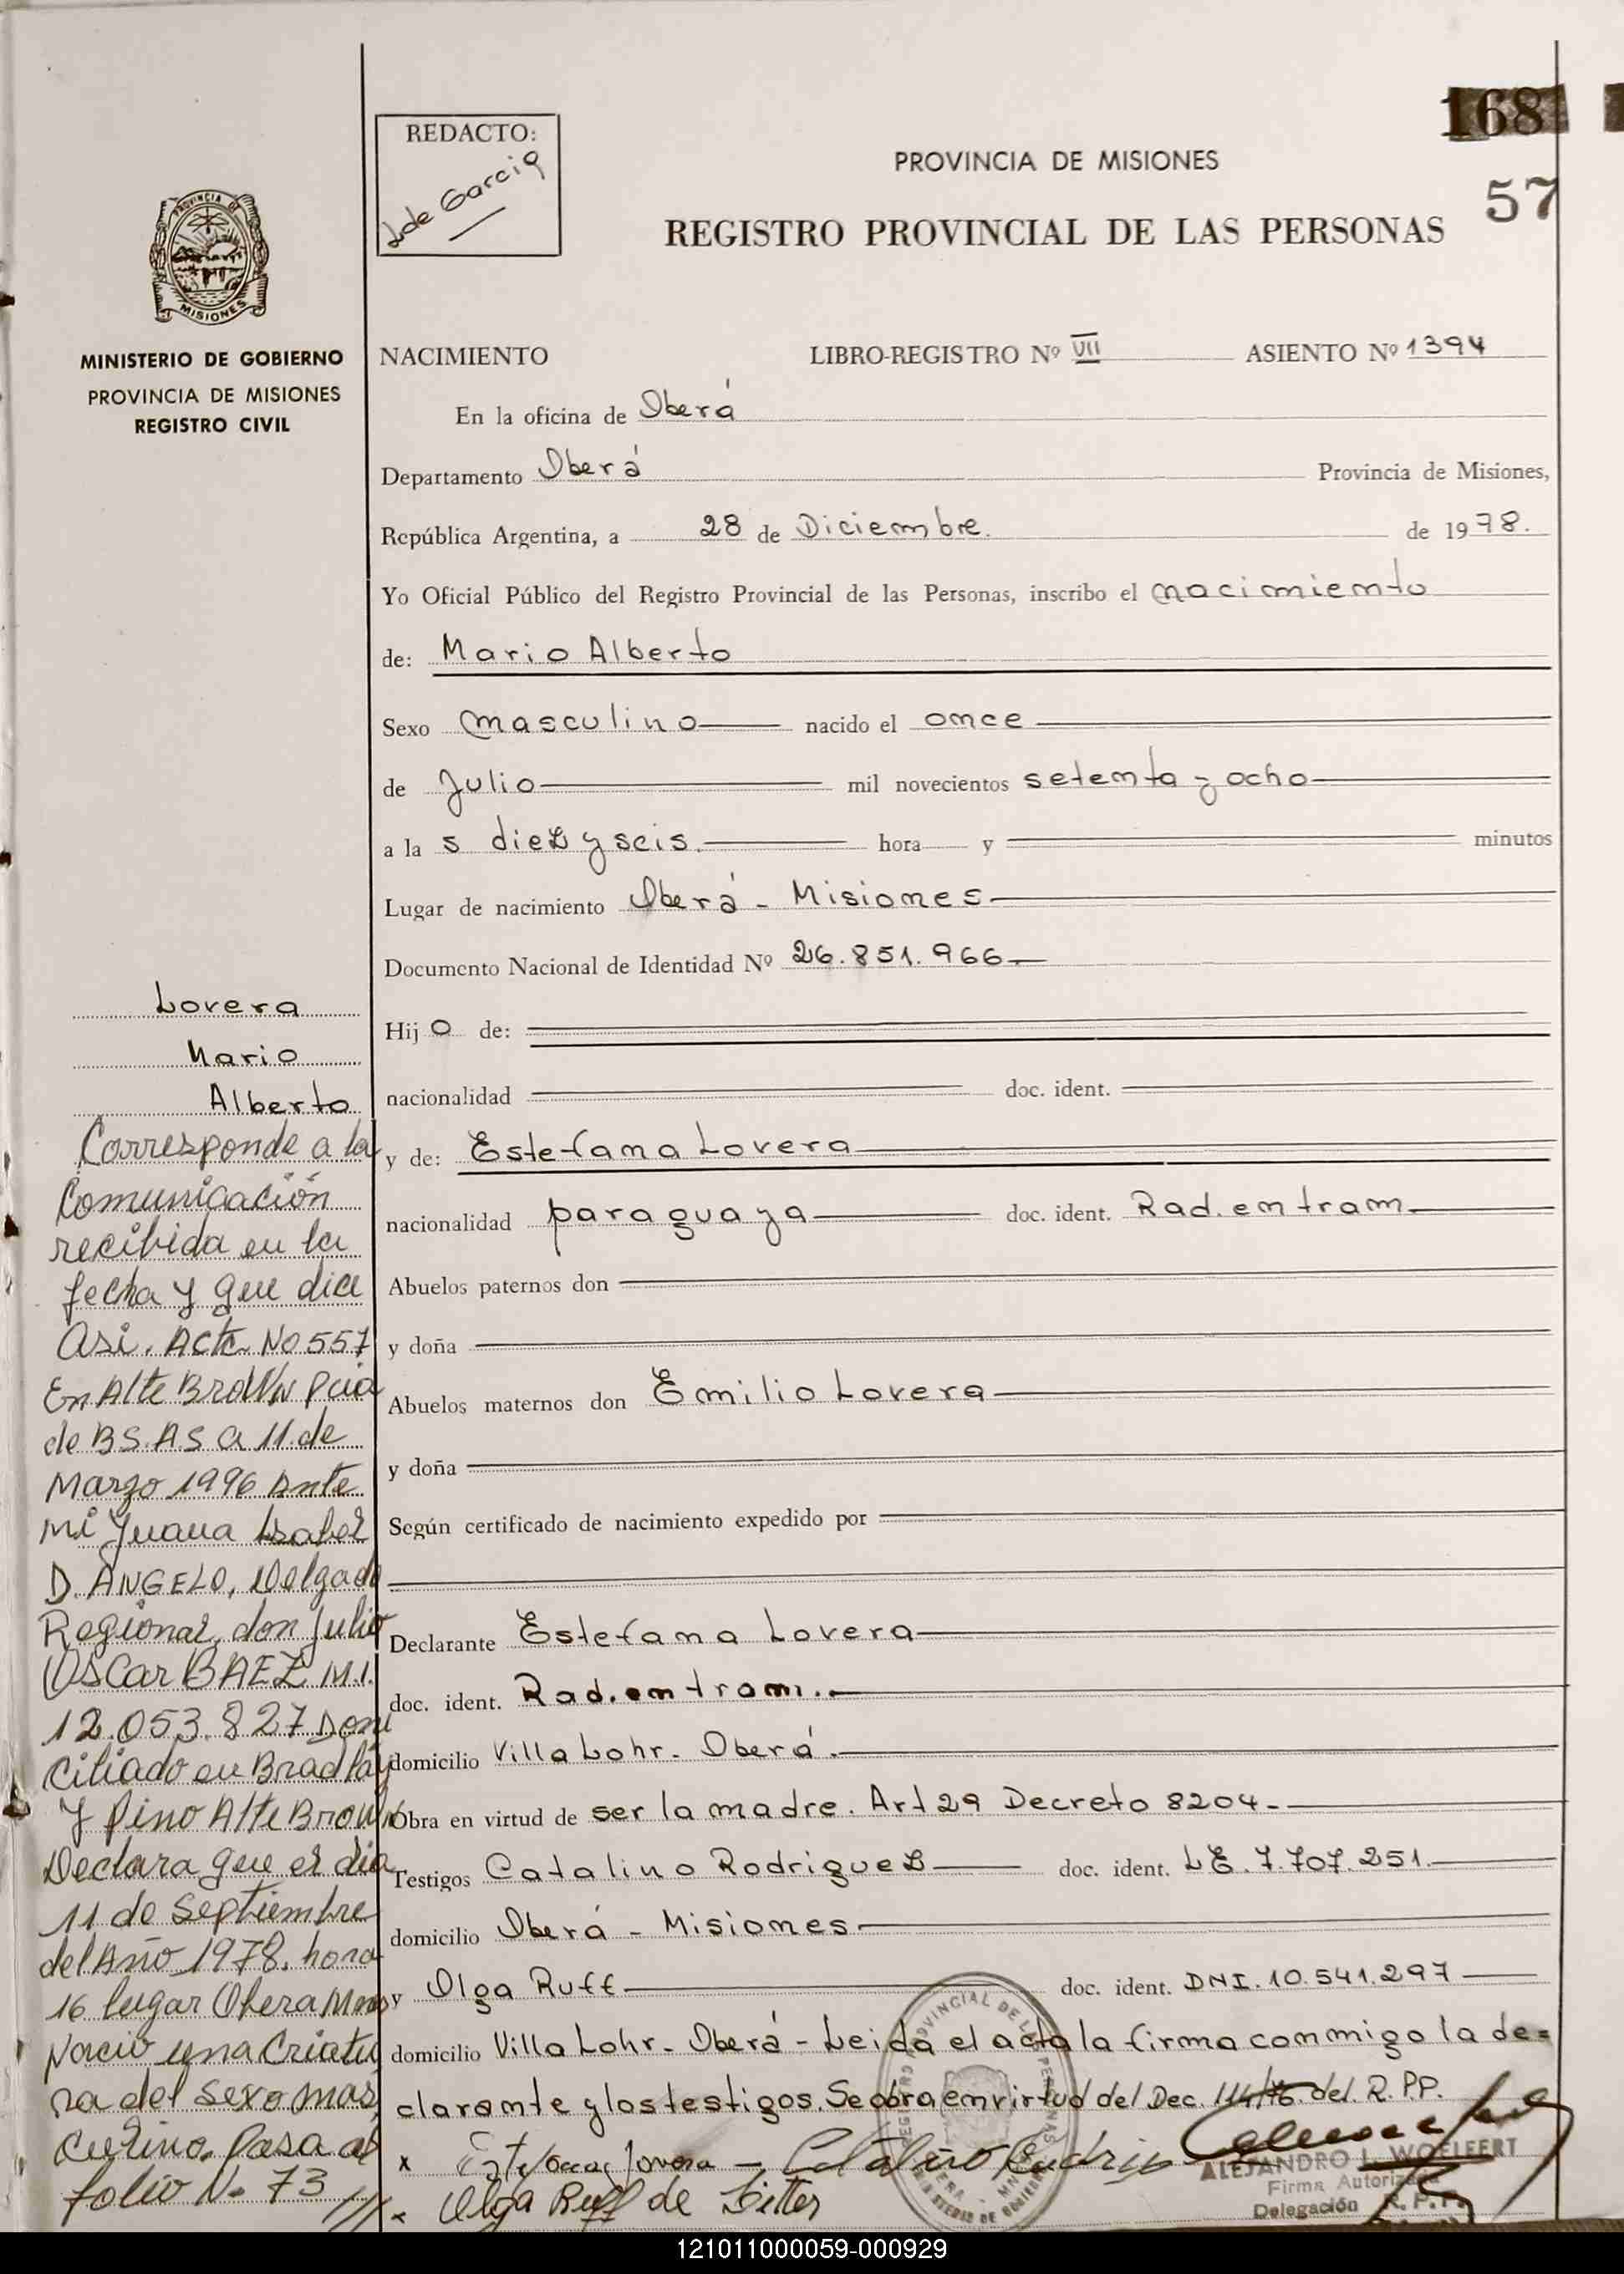 168
57
REDACTO:
L de Garcia
PROVINCIA DE MISIONES
REGISTRO PROVINCIAL DE LAS PERSONAS
PROVINCIA DE
MISIONES
MINISTERIO DE GOBIERNO
PROVINCIA DE MISIONES
REGISTRO CIVIL
NACIMIENTO LIBRO-REGISTRO Nº VII ASIENTO Nº 1394
En la oficina de Oberá
Departamento Oberá Provincia de Misiones,
República Argentina, a 28 de Diciembre. de 1978.
Yo Oficial Público del Registro Provincial de las Personas, inscribo el nacimiento
de: Mario Alberto
Sexo masculino nacido el once
de Julio mil novecientos setenta y ocho
a la s diez y seis. hora y minutos
Lugar de nacimiento Oberá - Misiones
Documento Nacional de Identidad Nº 26.851.966
Hij o de:
nacionalidad doc. ident.
y de: Estefana Lovera
nacionalidad paraguaya doc. ident. Rad. en tram.
Abuelos paternos don
y doña
Abuelos maternos don Emilio Lovera
y doña
Según certificado de nacimiento expedido por
Declarante Estefana Lovera
doc. ident. Rad. en tram.
domicilio Villa Lohr - Oberá.
Obra en virtud de ser la madre. Art 29 Decreto 8204.
Testigos Catalino Rodriguez doc. ident. L.E. 7.707.251.
domicilio Oberá - Misiones
y Olga Ruff doc. ident. DNI. 10.541.297
domicilio Villa Lohr - Oberá - Leida el acta la firma conmigo la de=
clarante y los testigos. Se obra en virtud del Dec. 114/76 del R.P.P.
x Estefana Lovera - Catalino Rodrig
x Olga Ruff de
ALEJANDRO L. WOELFERT
Firma Autorizada
Delegación R.P.P.
Lovera
Mario
Alberto
Corresponde a la
Comunicación
recibida en la
fecha y que dice
Asi. Acta No 557
En Alte Brown Pcia
de BS.AS a 11 de
Marzo 1996 Ante
mi Juana Isabel
D. ANGELO, Delgado
Regional, don Julio
Oscar BAEZ M.I.
12.053.827 Domi
ciliado en Bradlay
y Pino Alte Brown
Declara que el dia
11 de Septiembre
del Año 1978. hora
16 lugar Obera Mnes
Nacio una Criatu
ra del sexo mas
culino. Pasa al
folio N. 73 ///
121011000059-000929